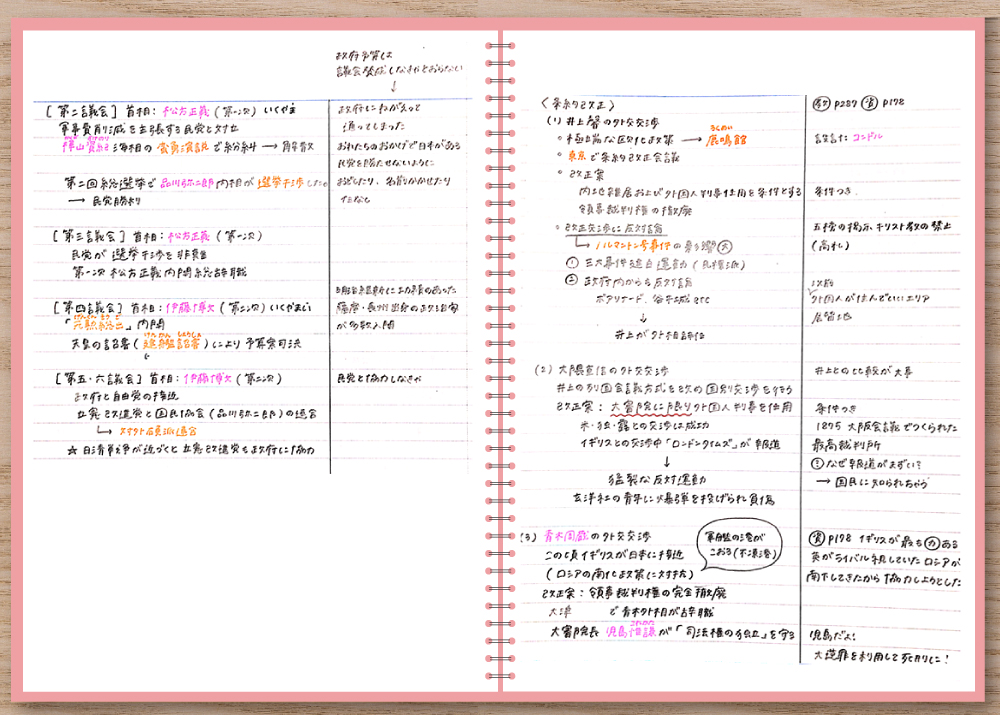 政府予算は
議会賛成しなきゃとおらない
↓
[第二議会] 首相：松方正義（第一次）いくやま
軍事費削減を主張する民党と対立
樺山資紀海相の蛮勇演説で紛糾 → 解散
第二回総選挙で品川弥二郎内相が選挙干渉した。
→ 民党勝利
政府にねがえって
通ってしまった
おれたちのおかげで日本がある
民党を勝たせないように
おどしたり、名前かかせたり
[第三議会] 首相：松方正義（第一次）
民党が選挙干渉を非難
第一次松方正義内閣総辞職
[第四議会] 首相：伊藤博文（第二次）いくやまい
「元勲総出」内閣
天皇の詔書（建艦詔書）により予算案可決
明治維新に功績のあった
薩摩・長州出身の政治家
が多数入閣
[第五・六議会] 首相：伊藤博文（第二次）
政府と自由党の接近
立憲改進党と国民協会（品川弥二郎）の連合
→ 対外硬派連合
☆ 日清戦争が近づくと立憲改進党も政府に協力
民党と協力しなきゃ
〈条約改正〉
(1) 井上馨の外交交渉
。極端な欧化政策 → 鹿鳴館
ろくめいかん
。東京で条約改正会議
。改正案
内地雑居および外国人判事任用を条件とする
領事裁判権の撤廃
。改正交渉に反対論
→ ノルマントン号事件の影響大
① 三大事件建白運動（民権派）
② 政府内からも反対論
ボアソナード、谷干城 etc
↓
井上が外相辞任
教 p287 資 p178
設計は コンドル
条件つき
五榜の掲示 キリスト教の禁止
(高札)
外国人が住んでいいエリア
居留地
(2) 大隈重信の外交交渉
井上の列国会議方式を改め国別交渉をする
改正案：大審院に限り外国人判事を任用
米・独・露との交渉は成功
イギリスとの交渉中「ロンドンタイムズ」が報道
↓
猛烈な反対運動
玄洋社の青年に爆弾を投げられ負傷
井上との比較が大事
条件つき
1875 大阪会議でつくられた
最高裁判所
! なぜ報道がまずい?
→ 国民に知られちゃう
(3) 青木周蔵の外交交渉
この頃イギリスが日本に接近
(ロシアの南化政策に対抗)
改正案：領事裁判権の完全撤廃
大津　　で青木外相が辞職
大審院長 児島惟謙が「司法権の独立」を守る
軍艦の港が
こおる(不凍港)
資 p178 イギリスが最も力ある
英がライバル視していたロシアが
南下してきたから協力しようとした
児島だよ!
大逆罪を利用して死刑に!